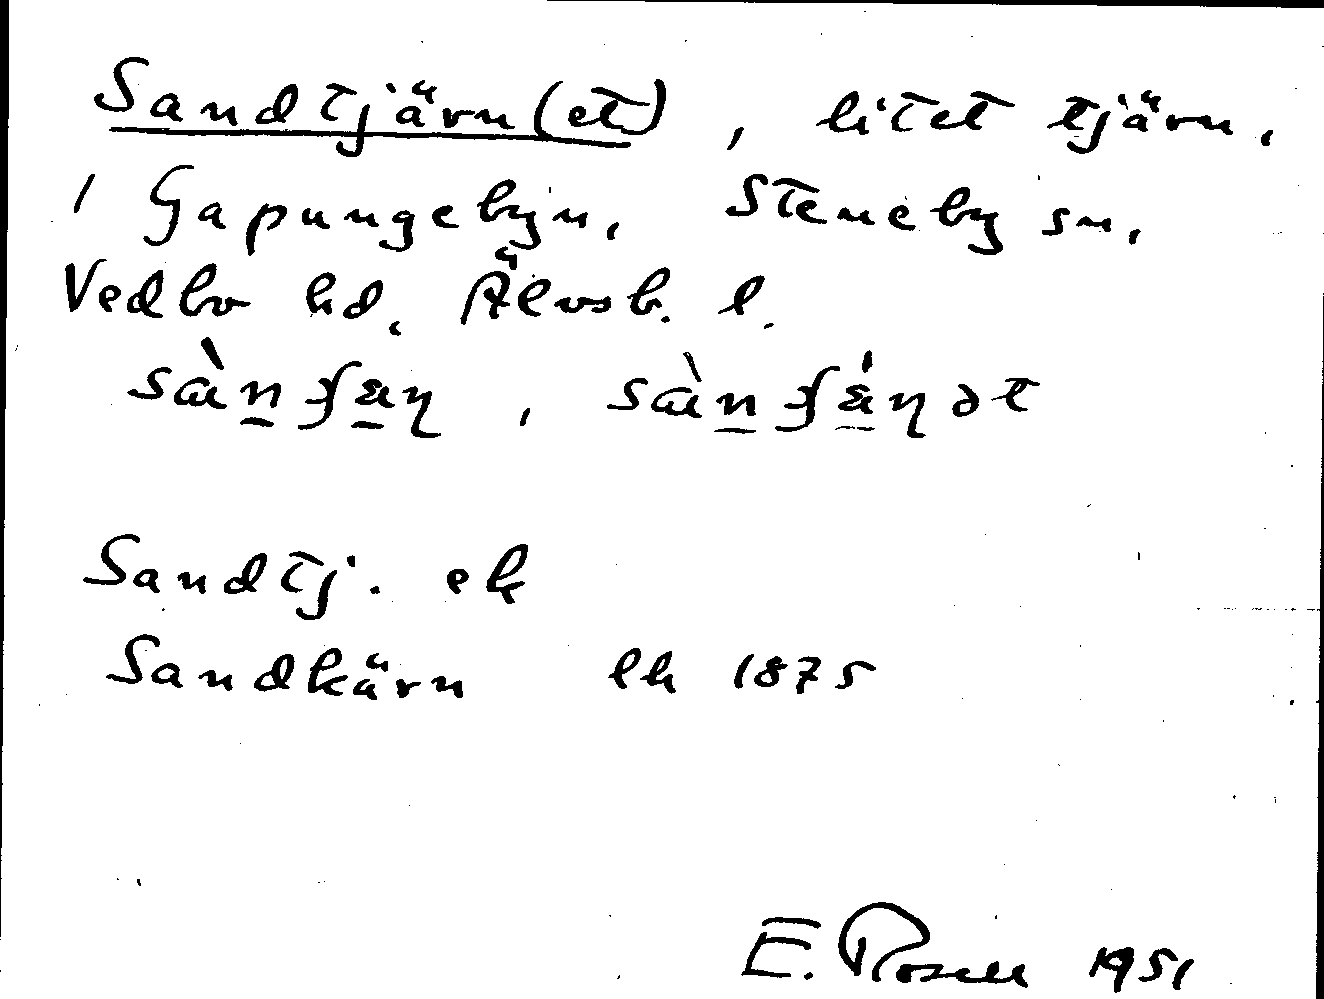 Sandtjärn(et), litet tjärn,
i Gapungebyn, Steneby sn,
Vedbo hd, Älvsb. l.
Sandtj. ek
Sandkärn lk 1875
E. Rosell 1951